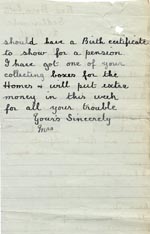 should have a Birth certificate
to show for a pension
I have got one of your
collecting boxes for the
Homes & will put extra
money in this week
for all your trouble
Yours Sincerely
Mrs